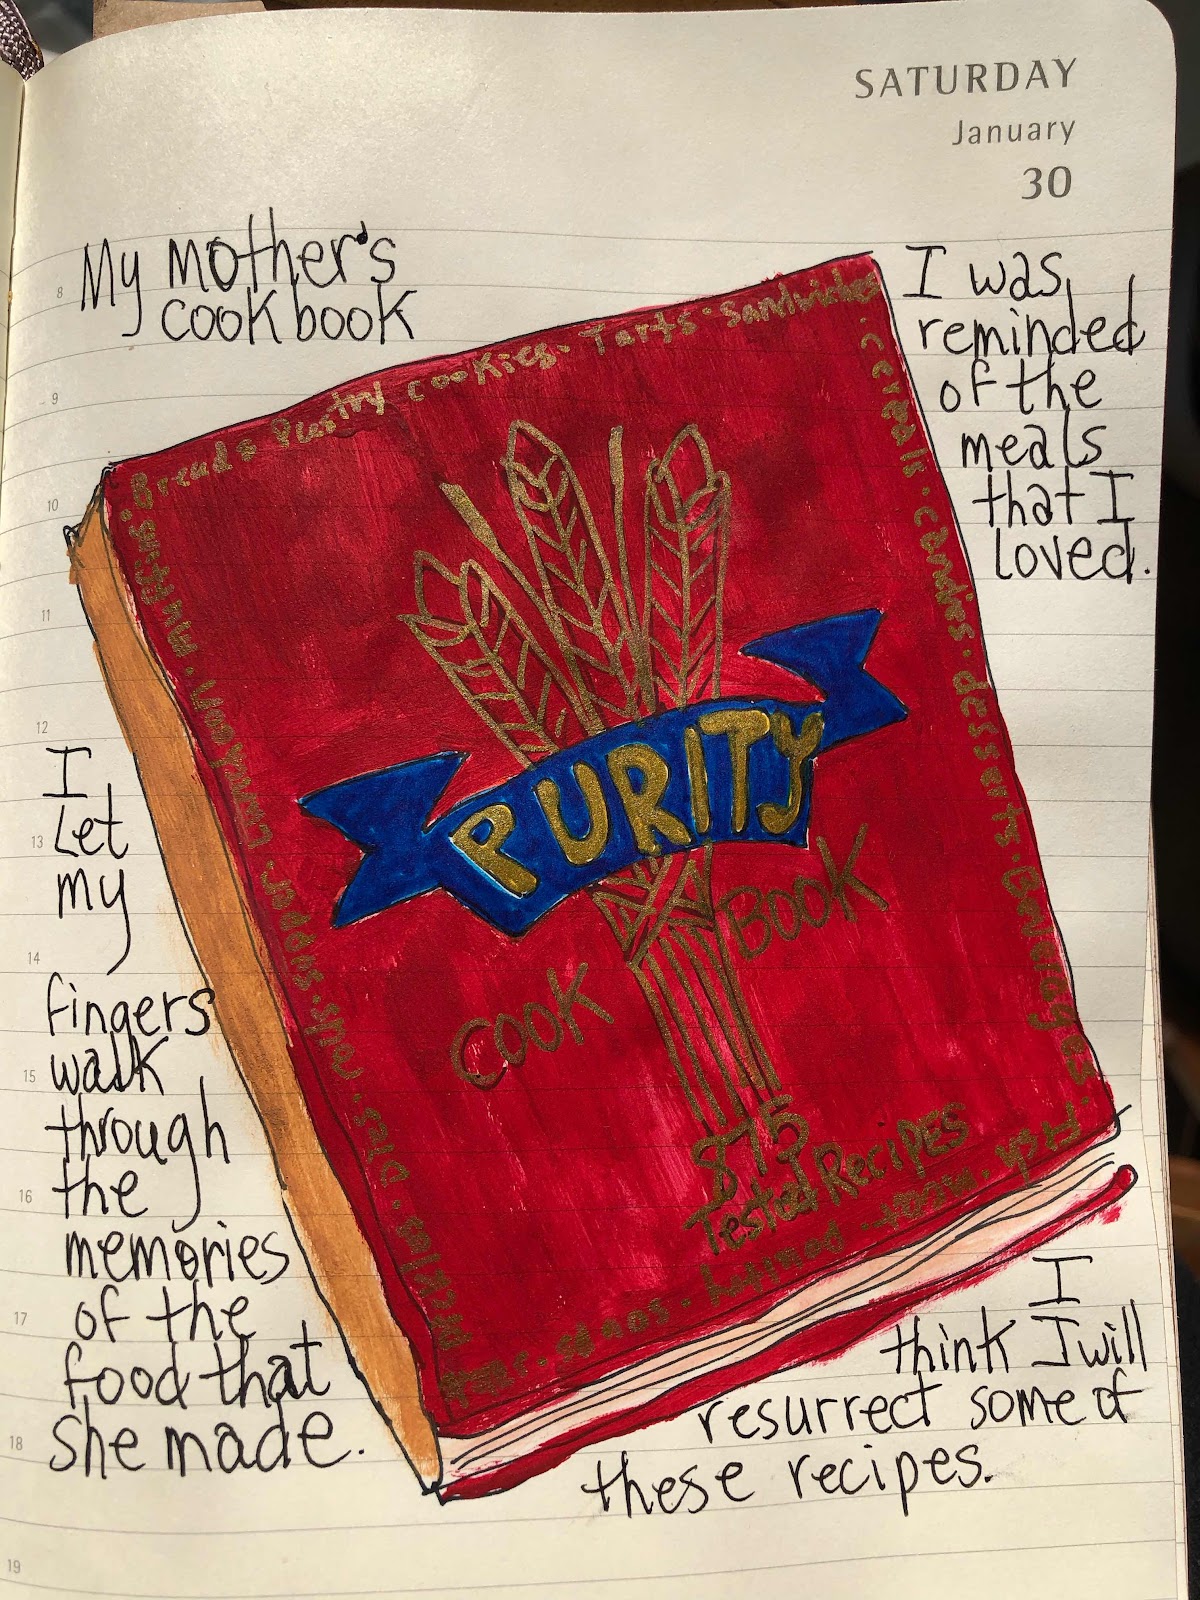 SATURDAY
January
30
My mother's
cookbook
I was
reminded
of the
meals
that I
loved.
I
Let
my
fingers
walk
through
the
memories
of the
food that
she made.
I
think I will
resurrect some of
these recipes.
PURITY
COOK BOOK
875
Tested RECIPES
Breads Pastry cookies. Tarts. sandwiches
. cereals. candies. desserts. Beverages.
Fish. meat. poultry. soups.
Pickles. pies. rolls. supper. luncheon. muffins.
8
9
10
11
12
13
14
15
16
17
18
19